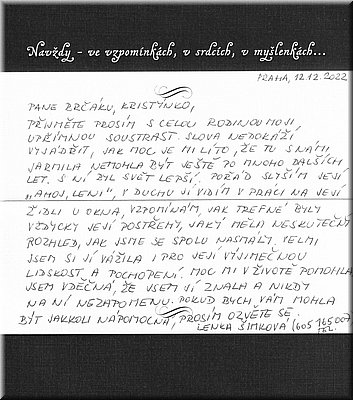 Navždy - ve vzpomínkách, v srdcích, v myšlenkách...
PRAHA, 12.12.2022
PANE BRČÁKU, KRISTÝNKO,
PŘIJMĚTE PROSÍM S CELOU RODINOU MOJI
UPŘÍMNOU SOUSTRAST. SLOVA NEDOKÁŽÍ
VYJÁDŘIT, JAK MOC JE MI LÍTO, ŽE TU S NÁMI
JARMILA NEMOHLA BÝT JEŠTĚ PO MNOHO DALŠÍCH
LET. S NÍ BYL SVĚT LEPŠÍ. POŘÁD SLYŠÍM JEJÍ
"AHOJ, LENI", V DUCHU JI VIDÍM V PRÁCI NA JEJÍ
ŽIDLI U OKNA, VZPOMÍNÁM, JAK TREFNÉ BYLY
VŽDYCKY JEJÍ POSTŘEHY, JAKÝ MĚLA NESKUTEČNÝ
ROZHLED, JAK JSME SE SPOLU NASMÁLY. VELMI
JSEM SI JÍ VÁŽILA I PRO JEJÍ VÝJIMEČNOU
LIDSKOST A POCHOPENÍ. MOC MI V ŽIVOTĚ POMOHLA.
JSEM VDĚČNÁ, ŽE JSEM JI ZNALA A NIKDY
NA NI NEZAPOMENU. POKUD BYCH VÁM MOHLA
BÝT JAKKOLI NÁPOMOCNÁ, PROSÍM OZVĚTE SE.
LENKA ŠIMKOVÁ (605 165 007)
TEL.